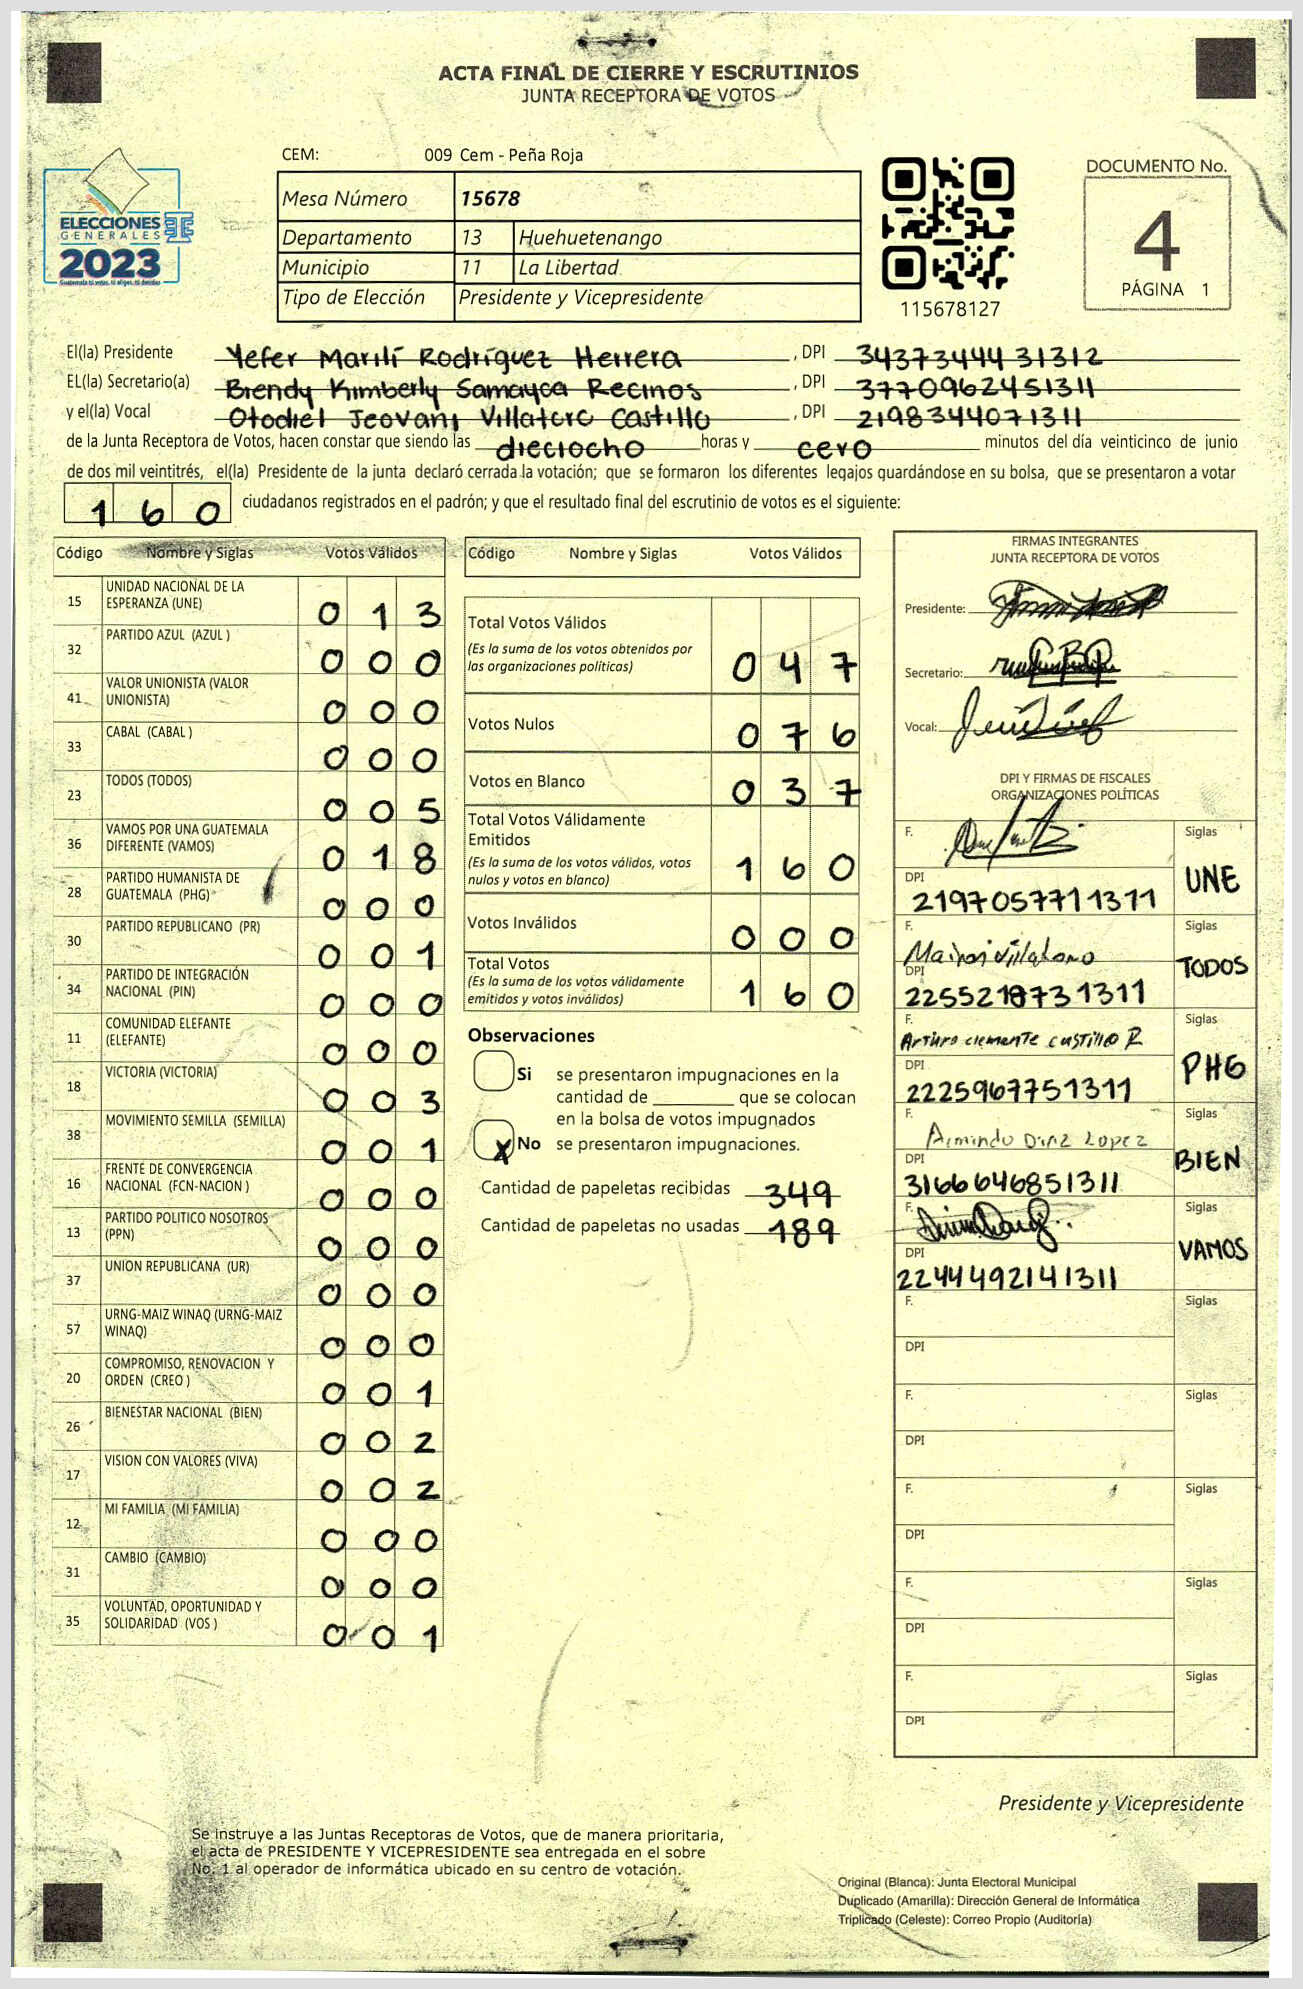 ACTA FINAL DE CIERRE Y ESCRUTINIOS
JUNTA RECEPTORA DE VOTOS
ELECCIONES
GENERALES
2023
CEM: 009 Cem - Peña Roja
Mesa Número 15678
Departamento 13 Huehuetenango
Municipio 11 La Libertad
Tipo de Elección Presidente y Vicepresidente
115678127
DOCUMENTO No.
4
PÁGINA 1
El(la) Presidente Yefer Marilí Rodríguez Herrera , DPI 3437344431312
EL(la) Secretario(a) Brendy Kimberly Samayoa Recinos , DPI 3770962451311
y el(la) Vocal Otodiel Jeovani Villatoro Castillo , DPI 2198344071311
de la Junta Receptora de Votos, hacen constar que siendo las dieciocho horas y cero minutos del día veinticinco de junio
de dos mil veintitrés, el(la) Presidente de la junta declaró cerrada la votación; que se formaron los diferentes legajos guardándose en su bolsa, que se presentaron a votar
160 ciudadanos registrados en el padrón; y que el resultado final del escrutinio de votos es el siguiente:
Código Nombre y Siglas Votos Válidos
15 UNIDAD NACIONAL DE LA ESPERANZA (UNE) 013
32 PARTIDO AZUL (AZUL ) 000
41 VALOR UNIONISTA (VALOR UNIONISTA) 000
33 CABAL (CABAL ) 000
23 TODOS (TODOS) 005
36 VAMOS POR UNA GUATEMALA DIFERENTE (VAMOS) 018
28 PARTIDO HUMANISTA DE GUATEMALA (PHG) 000
30 PARTIDO REPUBLICANO (PR) 001
34 PARTIDO DE INTEGRACIÓN NACIONAL (PIN) 000
11 COMUNIDAD ELEFANTE (ELEFANTE) 000
18 VICTORIA (VICTORIA) 003
38 MOVIMIENTO SEMILLA (SEMILLA) 001
16 FRENTE DE CONVERGENCIA NACIONAL (FCN-NACION ) 000
13 PARTIDO POLITICO NOSOTROS (PPN) 000
37 UNION REPUBLICANA (UR) 000
57 URNG-MAIZ WINAQ (URNG-MAIZ WINAQ) 000
20 COMPROMISO, RENOVACION Y ORDEN (CREO ) 001
26 BIENESTAR NACIONAL (BIEN) 002
17 VISION CON VALORES (VIVA) 002
12 MI FAMILIA (MI FAMILIA) 000
31 CAMBIO (CAMBIO) 000
35 VOLUNTAD, OPORTUNIDAD Y SOLIDARIDAD (VOS ) 001
Código Nombre y Siglas Votos Válidos
Total Votos Válidos 047
(Es la suma de los votos obtenidos por
las organizaciones políticas)
Votos Nulos 076
Votos en Blanco 037
Total Votos Válidamente
Emitidos 160
(Es la suma de los votos válidos, votos
nulos y votos en blanco)
Votos Inválidos 000
Total Votos 160
(Es la suma de los votos válidamente
emitidos y votos inválidos)
Observaciones
Si se presentaron impugnaciones en la
cantidad de ________ que se colocan
en la bolsa de votos impugnados
X No se presentaron impugnaciones.
Cantidad de papeletas recibidas 349
Cantidad de papeletas no usadas 189
FIRMAS INTEGRANTES
JUNTA RECEPTORA DE VOTOS
Presidente:
Secretario:
Vocal:
DPI Y FIRMAS DE FISCALES
ORGANIZACIONES POLÍTICAS
F. Siglas
DPI UNE
2197057711311
F. Siglas
DPI TODOS
2255218731311
F. Arturo clemente castillo R Siglas
DPI PHG
2225967751311
F. Armindo Diaz Lopez Siglas
DPI BIEN
3166646851311
F. Siglas
DPI VAMOS
2244492141311
F. Siglas
DPI
F. Siglas
DPI
F. Siglas
DPI
F. Siglas
DPI
F. Siglas
DPI
Presidente y Vicepresidente
Se instruye a las Juntas Receptoras de Votos, que de manera prioritaria,
el acta de PRESIDENTE Y VICEPRESIDENTE sea entregada en el sobre
No. 1 al operador de informática ubicado en su centro de votación.
Original (Blanca): Junta Electoral Municipal
Duplicado (Amarilla): Dirección General de Informática
Triplicado (Celeste): Correo Propio (Auditoría)